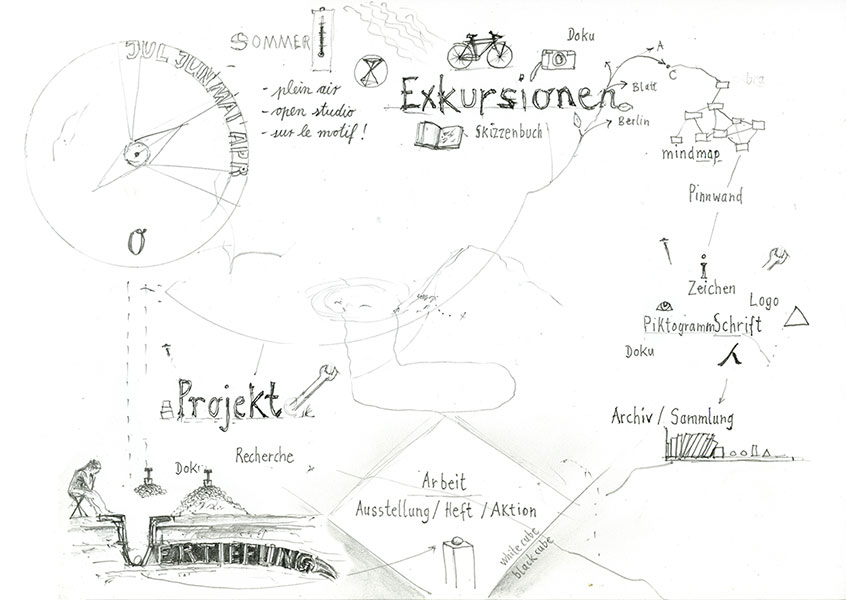 JUL JUN MAI APR
O
SOMMER
- plein air
- open studio
- sur le motif!
Doku
Exkursionen
Skizzenbuch
A
C
Blatt
Berlin
mindmap
Pinnwand
i
Zeichen
Logo
Piktogramm Schrift
Doku
Archiv / Sammlung
Projekt
Recherche
Dok
Arbeit
Ausstellung / Heft / Aktion
white cube
black cube
ERTIEFUNG